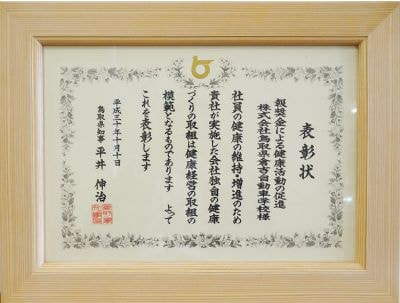 表彰状
報奨金による健康活動の促進
株式会社鳥取県倉吉自動車学校様
社員の健康の維持・増進のため
貴社が実施した会社独自の健康
づくりの取組は健康経営の取組の
模範となるものであります よって
これを表彰します
平成三十年十月十日
鳥取県知事 平井伸治